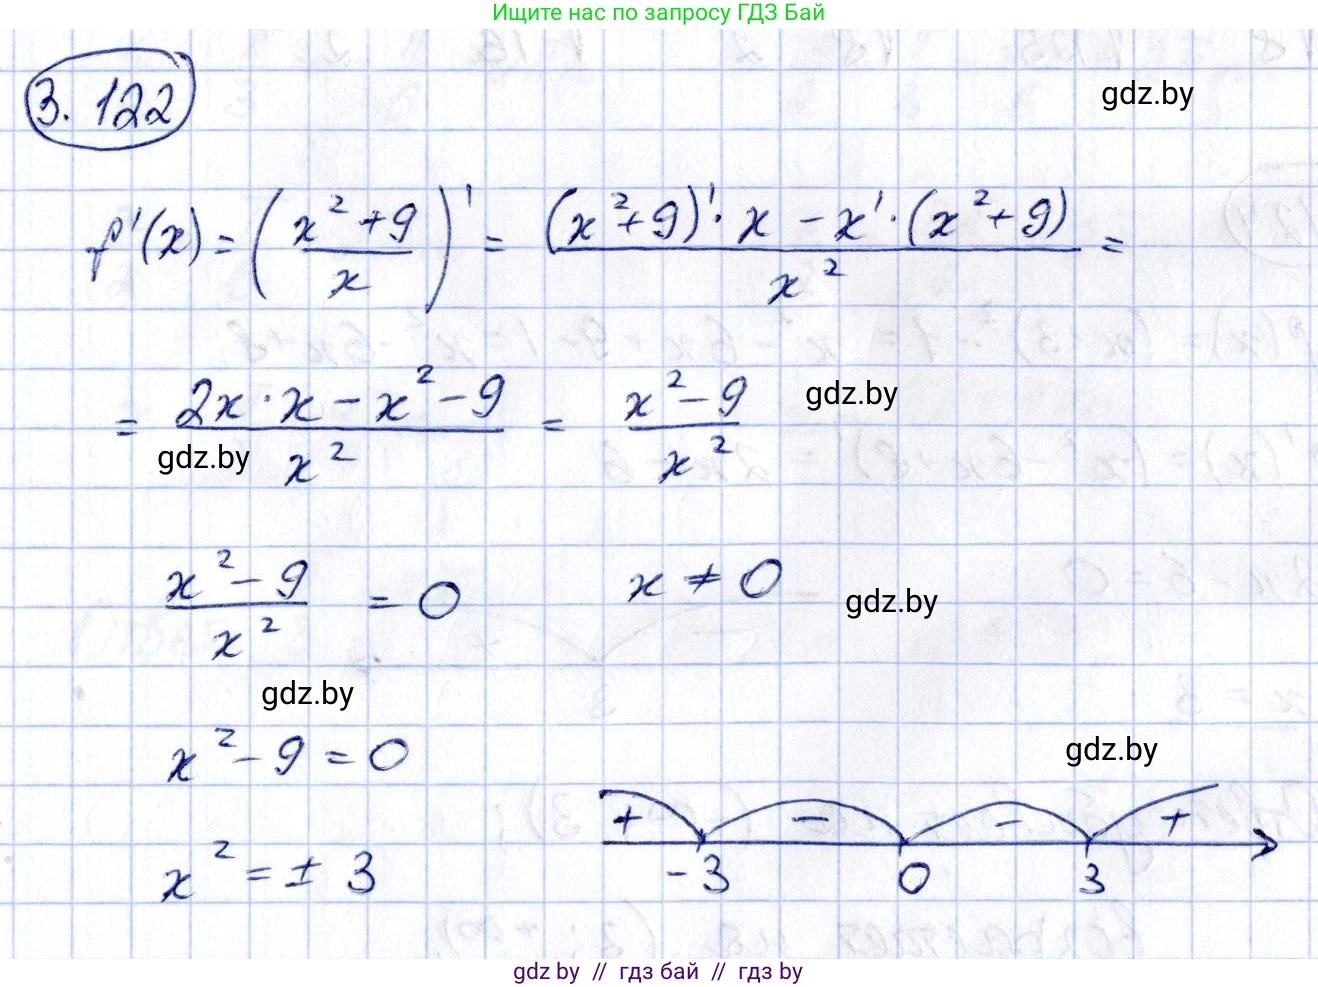 Ищите нас по запросу ГДЗ Бай
3.122
gdz.by
f'(x) = ((x² + 9)/x)' = ((x² + 9)' · x − x' · (x² + 9))/x² =
= (2x · x − x² − 9)/x² = (x² − 9)/x²
gdz.by
gdz.by
(x² − 9)/x² = 0 x ≠ 0
gdz.by
gdz.by
x² − 9 = 0
gdz.by
+ − − +
x² = ± 3
-3 0 3
gdz.by // гдз бай // гдз by